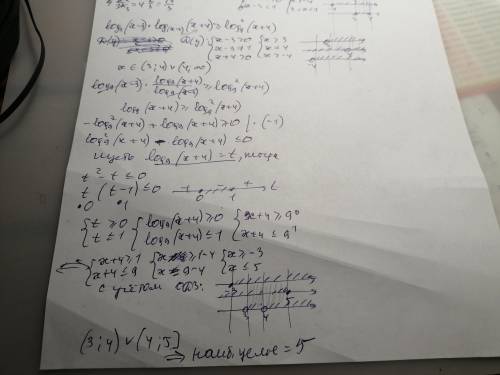 log₉(x-3) · log₍ₓ₋₃₎(x+4) ≥ log₉²(x+4)
D(y) { x-3>0 { x>3
x-3≠1 x≠4
x+4>0 x>-4
x ∈ (3;4) ∨ (4;∞)
log₉(x-3) · log₉(x+4)/log₉(x-3) ≥ log₉²(x+4)
log₉(x+4) ≥ log₉²(x+4)
-log₉²(x+4) + log₉(x+4) ≥ 0 | · (-1)
log₉²(x+4) - log₉(x+4) ≤ 0
Пусть log₉(x+4) = t, тогда
t² - t ≤ 0
t (t-1) ≤ 0 + - + t
•0 •1 0 1
{ t ≥ 0 { log₉(x+4) ≥ 0 { x+4 ≥ 9⁰
t ≤ 1 log₉(x+4) ≤ 1 x+4 ≤ 9¹
{ x+4 ≥ 1 { x ≥ 1-4 { x ≥ -3
x+4 ≤ 9 x ≤ 9-4 x ≤ 5
с учётом ОДЗ:
(3;4) ∨ (4;5]
⇒ наиб. целое = 5